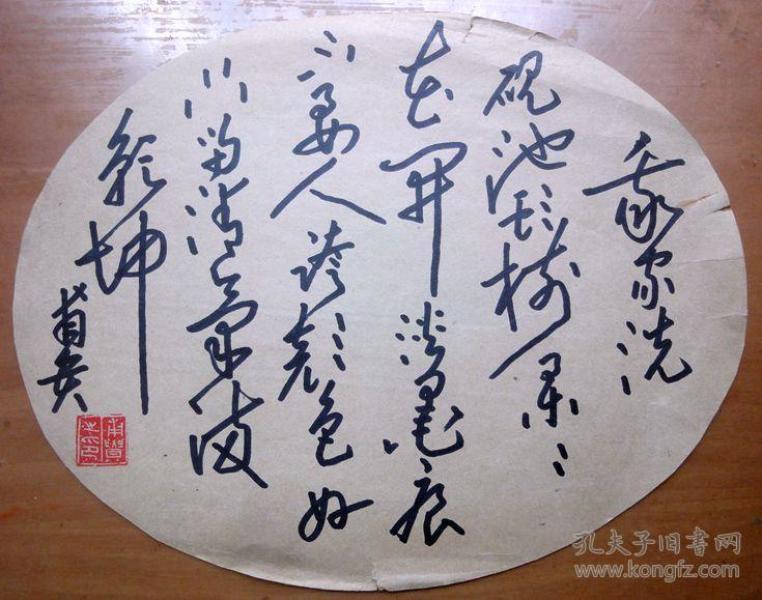 我家洗
砚池头树朵々
花開淡墨痕
不要人誇颜色好
只留清氣满
乾坤
孔夫子旧书网
www.kongfz.com